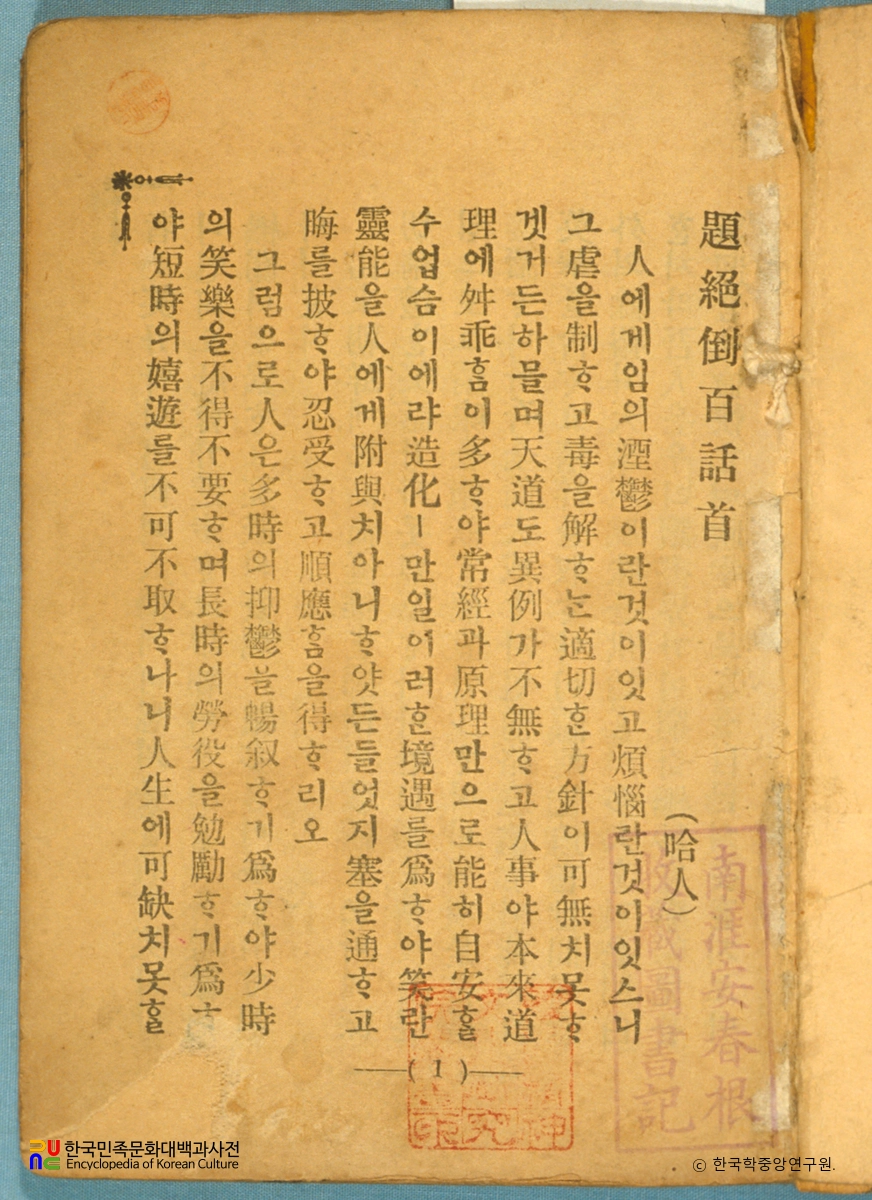 題絕倒百話首
(哈人)
人에게임의湮鬱이란것이잇고煩惱란것이잇스니
그虐을制ᄒᆞ고毒을解ᄒᆞᄂᆞᆫ適切ᄒᆞᆫ方針이可無치못ᄒᆞ
겟거든하믈며天道도異例가不無ᄒᆞ고人事야本來道
理에舛乖ᄒᆞᆷ이多ᄒᆞ야常經과原理만으로能히自安ᄒᆞᆯ
수업슴이에랴造化ㅣ만일이러ᄒᆞᆫ境遇를爲ᄒᆞ야笑란
靈能을人에게附與치아니ᄒᆞ얏든들엇지塞을通ᄒᆞ고
晦를披ᄒᆞ야忍受ᄒᆞ고順應ᄒᆞᆷ을得ᄒᆞ리오
그럼으로人은多時의抑鬱을暢叙ᄒᆞ기爲ᄒᆞ야少時
의笑樂을不得不要ᄒᆞ며長時의勞役을勉勵ᄒᆞ기爲ᄒᆞ
야短時의嬉遊를不可不取ᄒᆞ나니人生에可缺치못ᄒᆞᆯ
(1)
南涯安春根
收藏圖書記
한국민족문화대백과사전
Encyclopedia of Korean Culture
© 한국학중앙연구원.